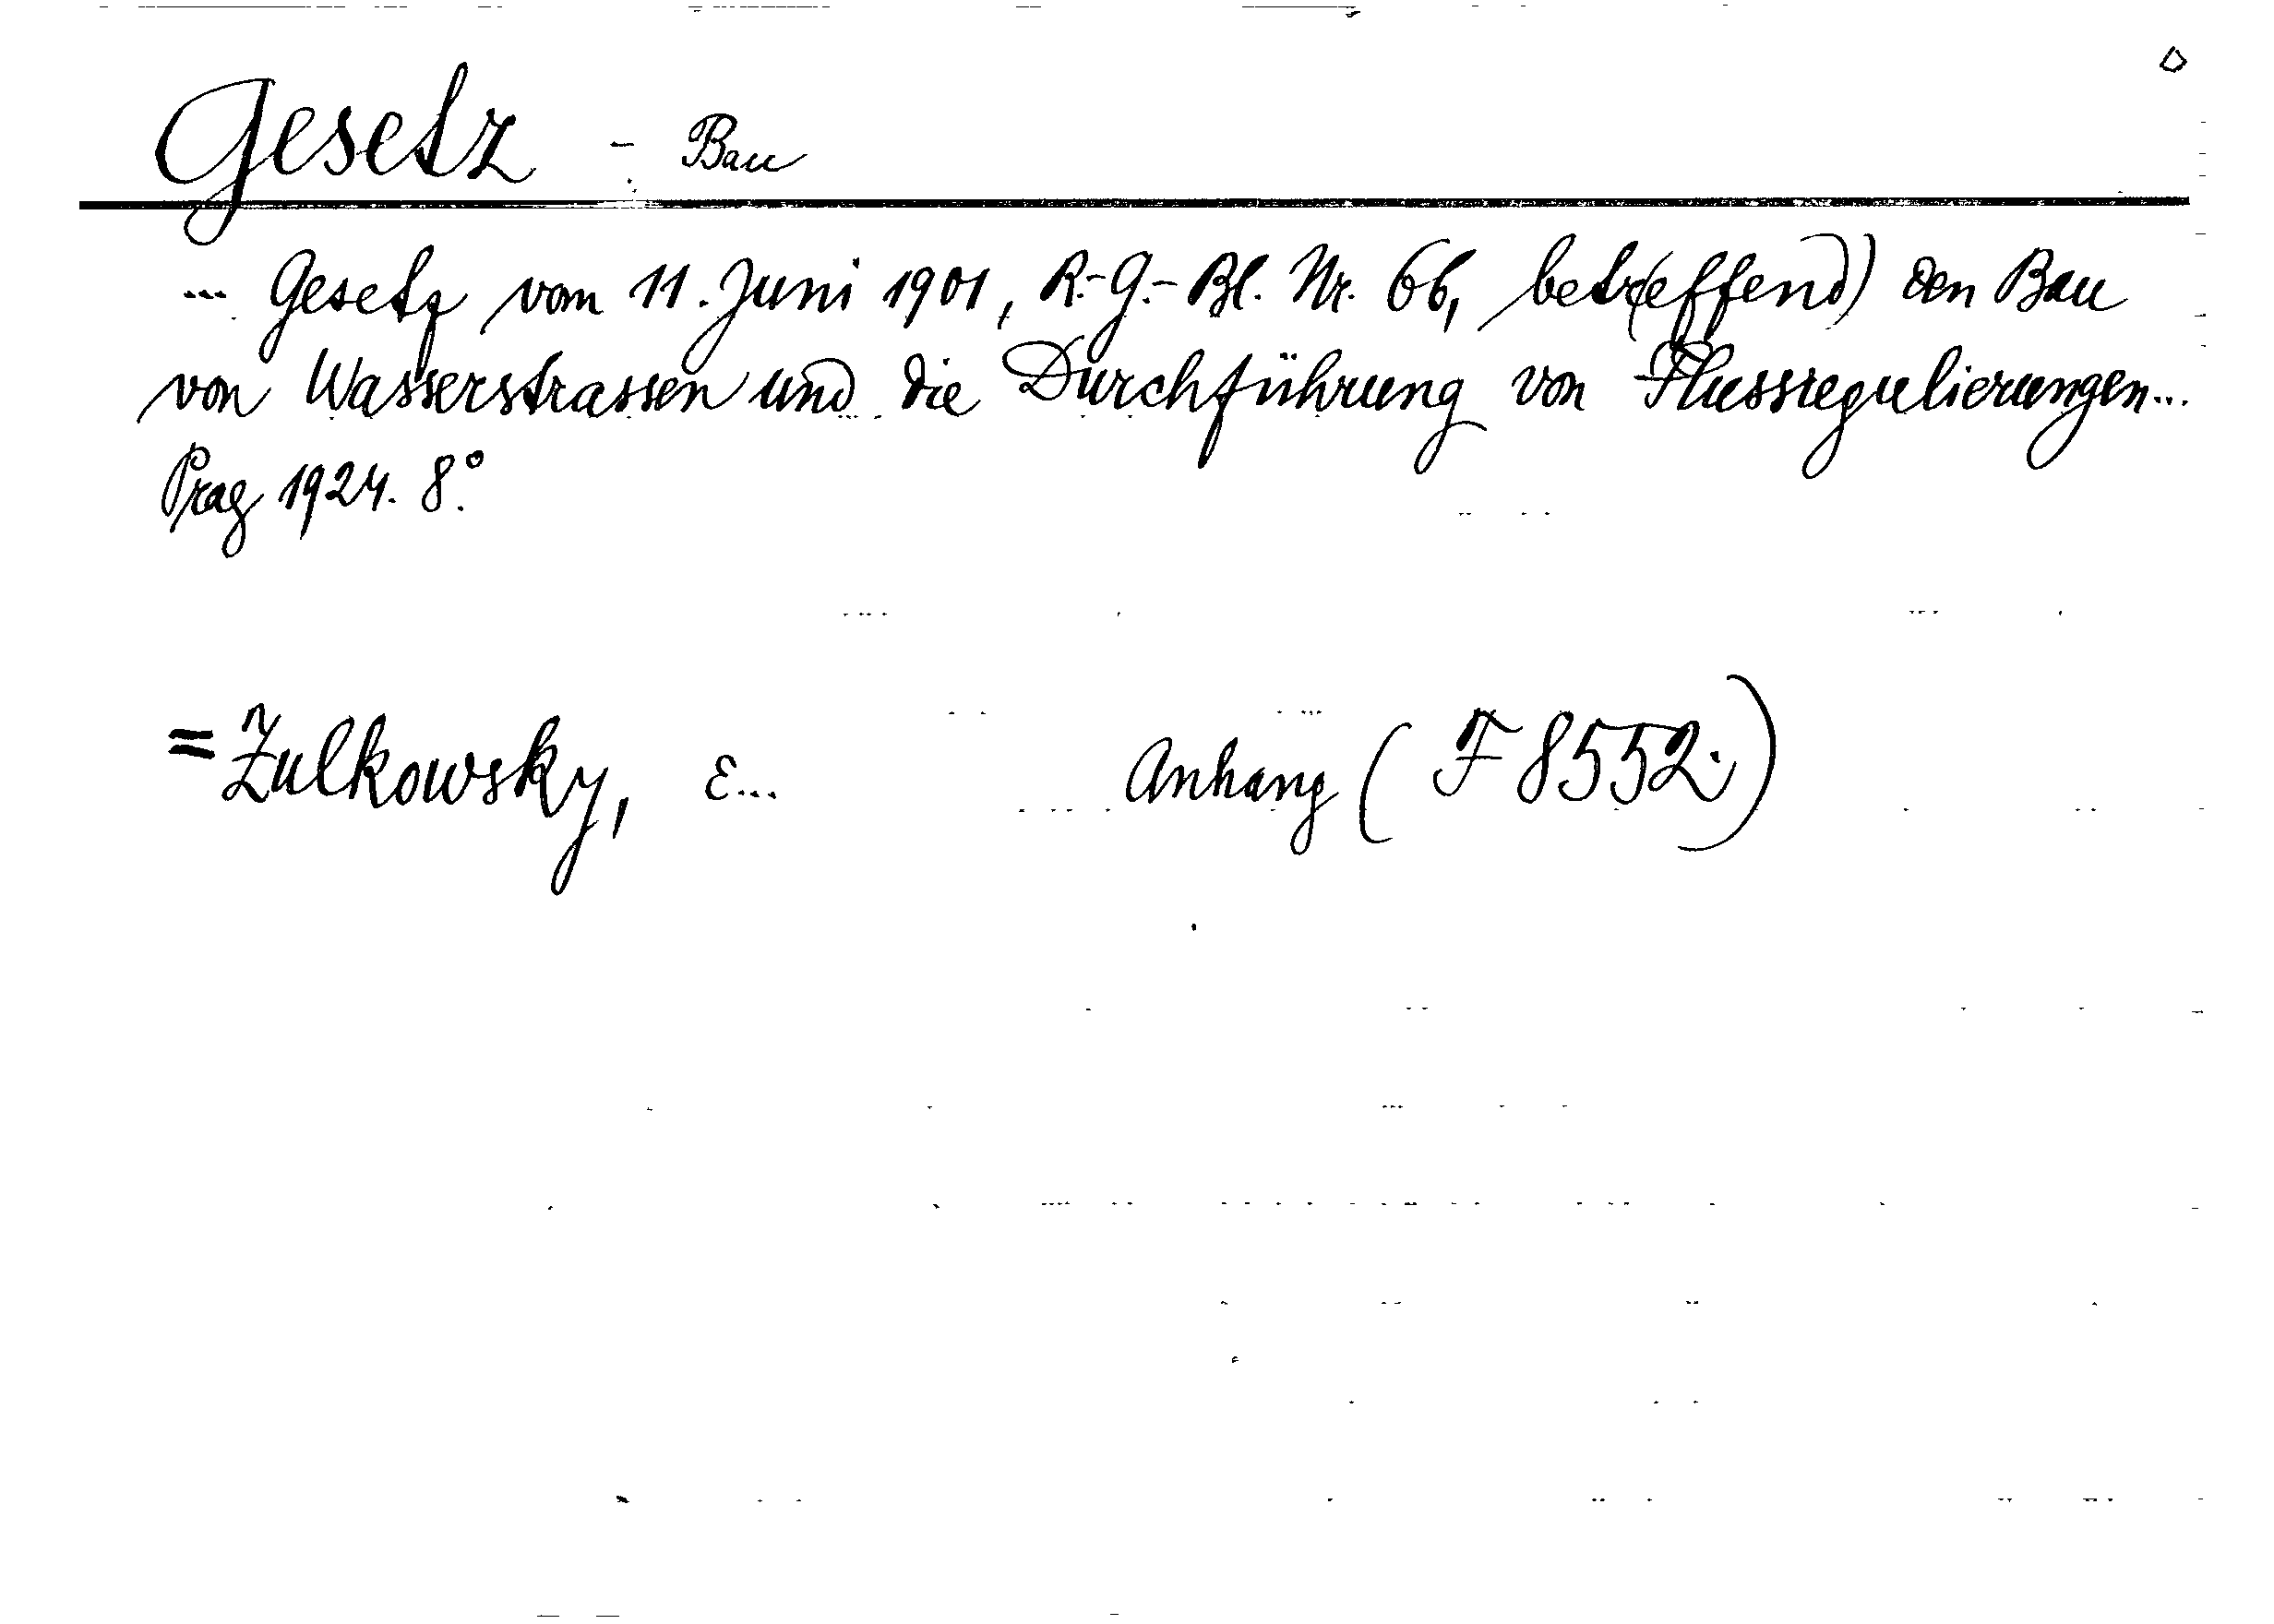 Gesetz - Bau
... Gesetz vom 11. Juni 1901, R.-G.-Bl. Nr. 66, betr(effend) den Bau
von Wasserstrassen und die Durchführung von Flussregulierungen...
Prag 1924. 8°.
= Žulkowsky, E... Anhang (F 8552.)